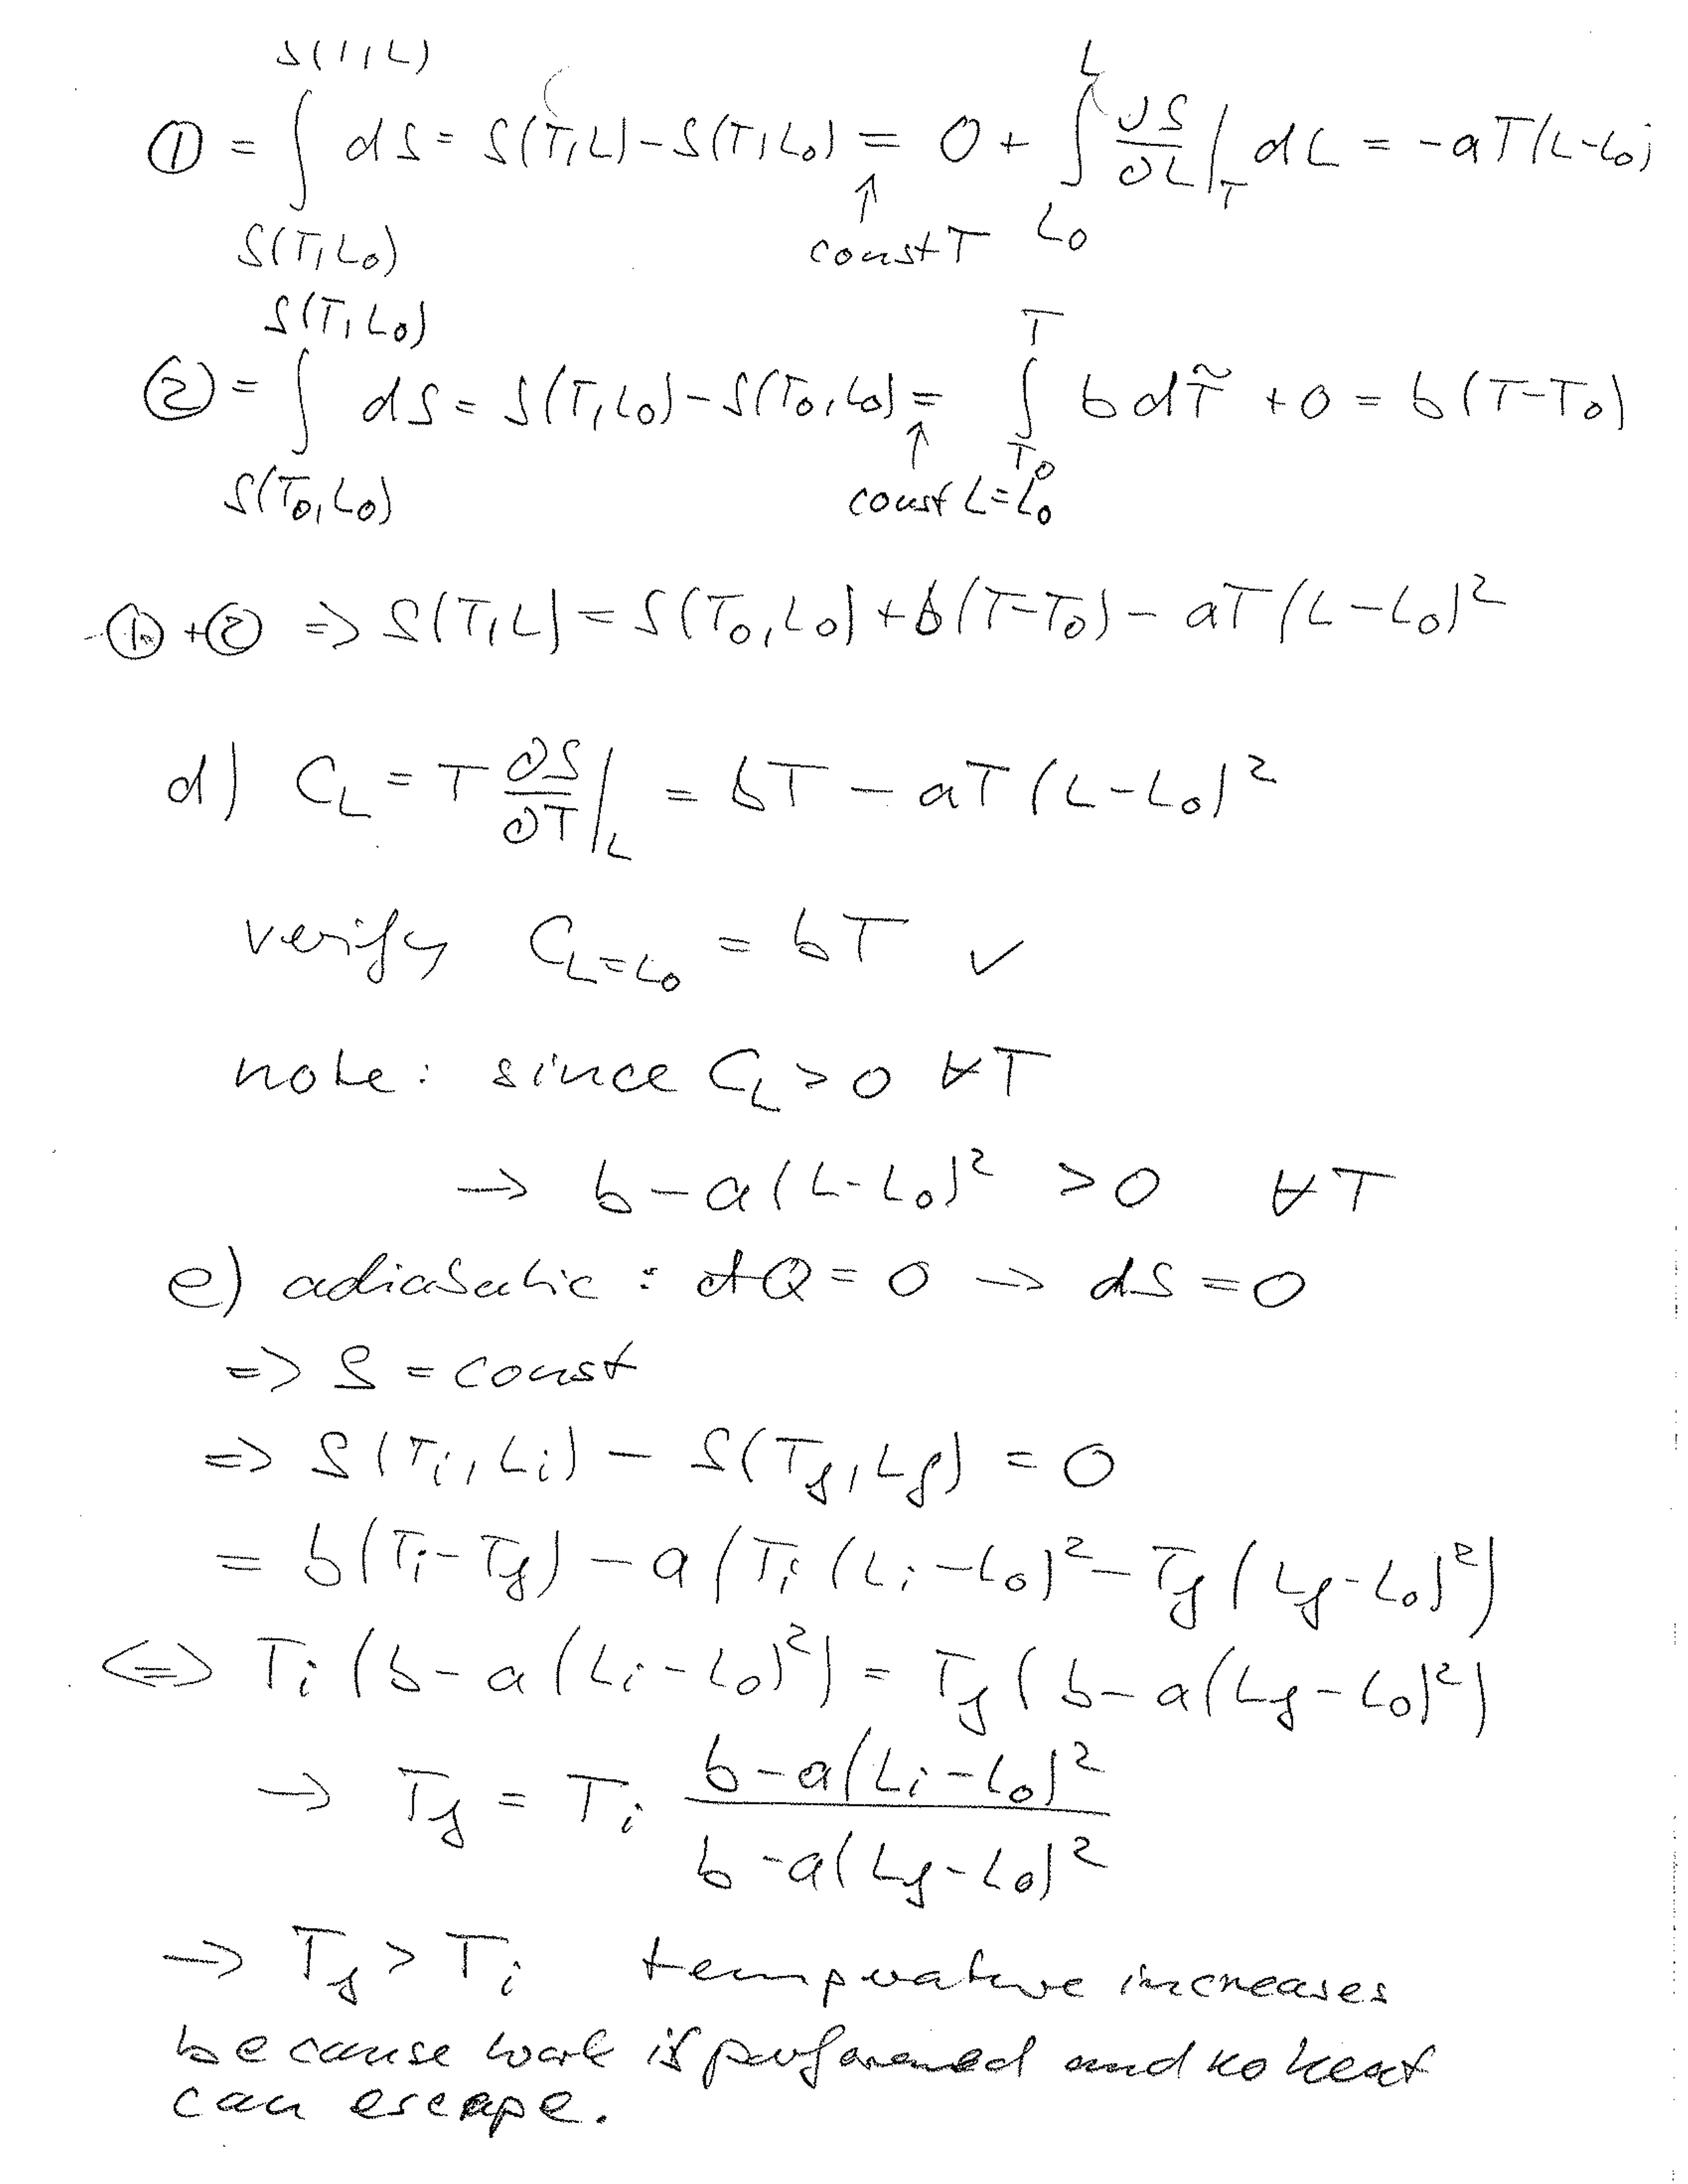 ① = ∫_{S(T,L₀)}^{S(T,L)} dS = S(T,L) - S(T,L₀) = 0 + ∫_{L₀}^{L} ∂S/∂L|_T dL = -aT(L-L₀)
↑ const T
② = ∫_{S(T₀,L₀)}^{S(T,L₀)} dS = S(T,L₀) - S(T₀,L₀) = ∫_{T₀}^{T} b dT̃ + 0 = b(T-T₀)
↑ const L=L₀
①+② => S(T,L) = S(T₀,L₀) + b(T-T₀) - aT(L-L₀)²
d) C_L = T ∂S/∂T|_L = bT - aT(L-L₀)²
verify C_{L=L₀} = bT ✓
note: since C_L > 0 ∀T
→ b - a(L-L₀)² > 0 ∀T
e) adiabatic: đQ = 0 → dS = 0
=> S = const
=> S(T_i, L_i) - S(T_f, L_f) = 0
= b(T_i - T_f) - a(T_i(L_i - L₀)² - T_f(L_f - L₀)²)
<=> T_i(b - a(L_i - L₀)²) = T_f(b - a(L_f - L₀)²)
→ T_f = T_i (b - a(L_i - L₀)²)/(b - a(L_f - L₀)²)
→ T_f > T_i temperature increases
because work is performed and no heat
can escape.